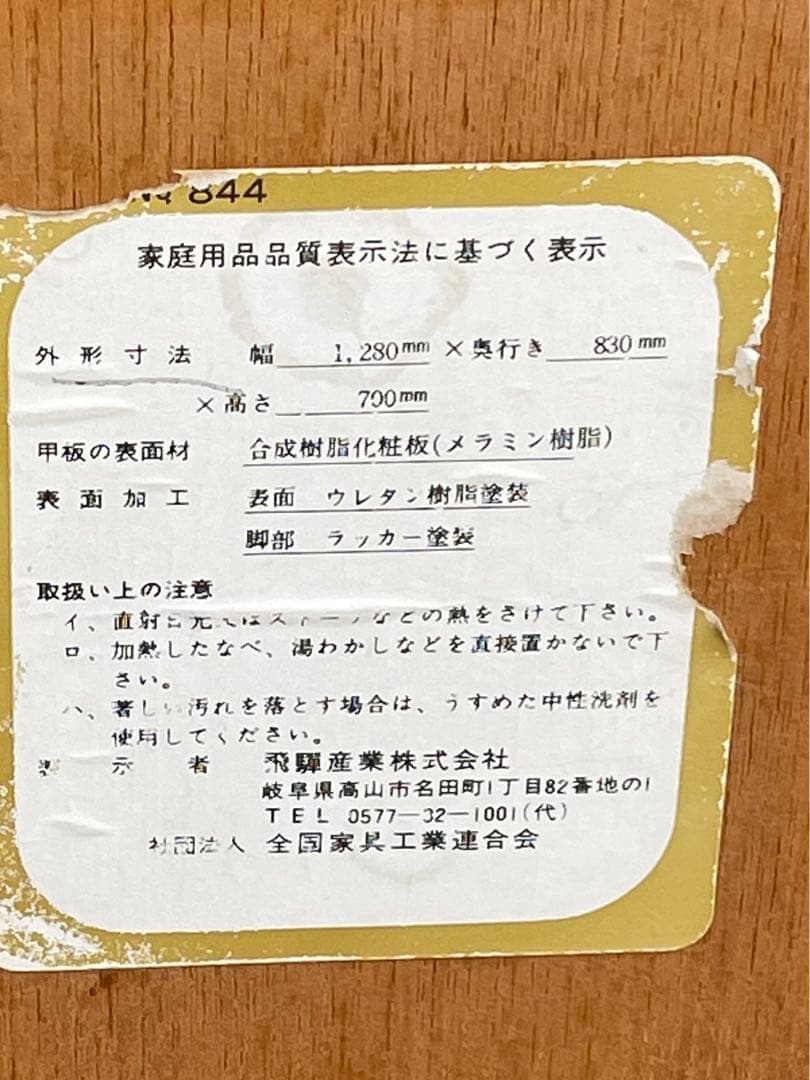 844
家庭用品品質表示法に基づく表示
外形寸法 幅 1,280mm ×奥行き 830mm
×高さ 700mm
甲板の表面材 合成樹脂化粧板(メラミン樹脂)
表面加工 表面 ウレタン樹脂塗装
脚部 ラッカー塗装
取扱い上の注意
イ、直射日光またはストーブなどの熱をさけて下さい。
ロ、加熱したなべ、湯わかしなどを直接置かないで下
さい。
ハ、著しい汚れを落とす場合は、うすめた中性洗剤を
使用してください。
表示者 飛驒産業株式会社
岐阜県高山市名田町1丁目82番地の1
TEL 0577-32-1001(代)
社団法人 全国家具工業連合会